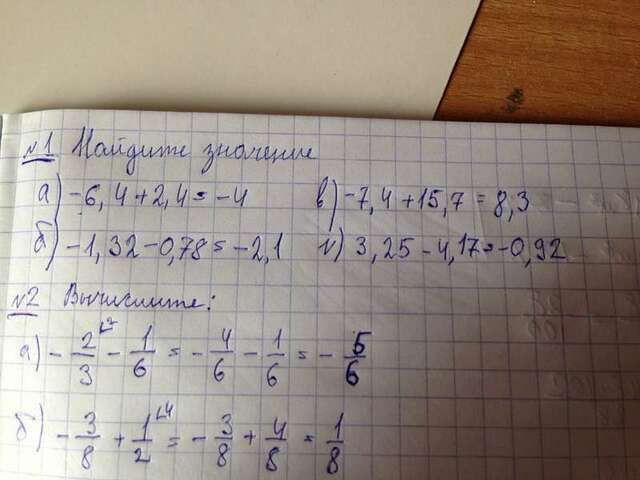 №1 Найдите значение
а) -6,4+2,4=-4 в) -7,4+15,7=8,3
б) -1,32-0,78=-2,1 г) 3,25-4,17=-0,92
№2 Вычислите:
а) -2/3 - 1/6 = -4/6 - 1/6 = -5/6
б) -3/8 + 1/2 = -3/8 + 4/8 = 1/8